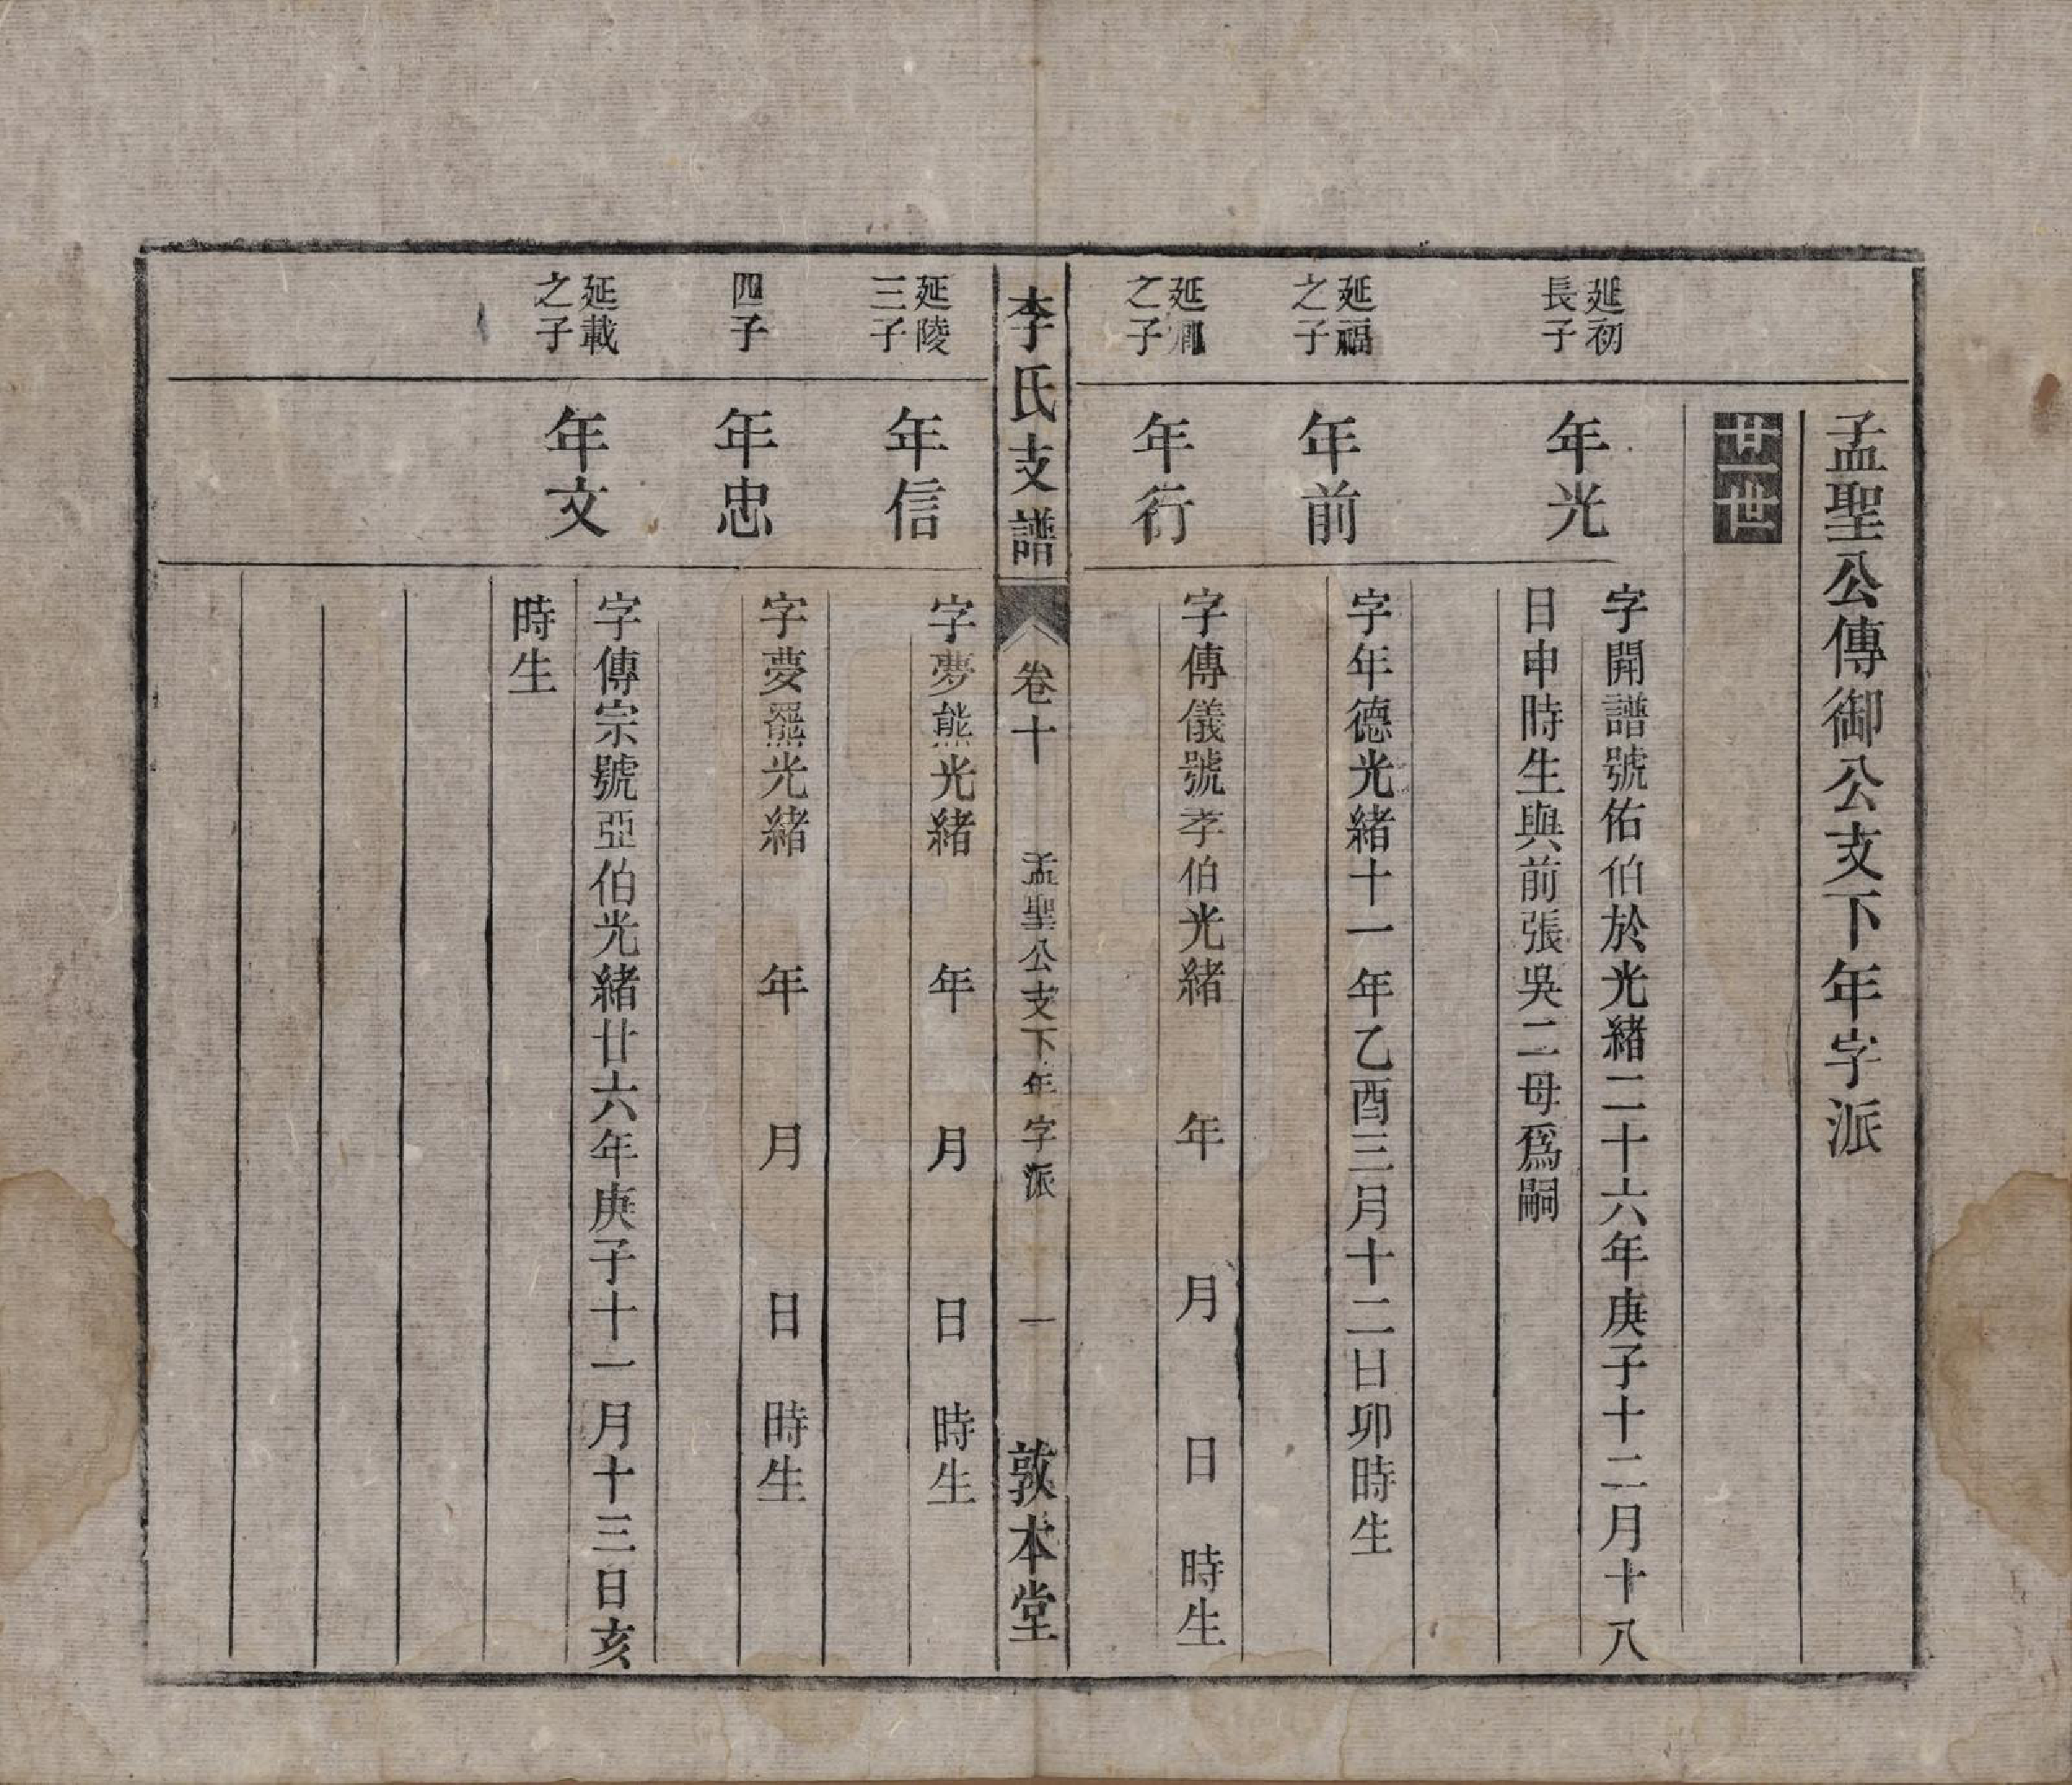 孟聖公傳御公支下年字派
廿一世
延初
長子
年光
字開譜號佑伯於光緒二十六年庚子十二月十八
日申時生與前張吳二母爲嗣
延福
之子
年前
字年德光緒十一年乙酉三月十二日卯時生
延
之子
年衍
字傳儀號孝伯光緒　年　月　日　時生
李氏支譜
卷十
孟聖公支下年字派
一
敦本堂
延陵
三子
年信
字夢熊光緒　年　月　日　時生
四子
年忠
字夢羆光緒　年　月　日　時生
延載
之子
年文
字傳宗號亞伯光緒廿六年庚子十一月十三日亥
時生